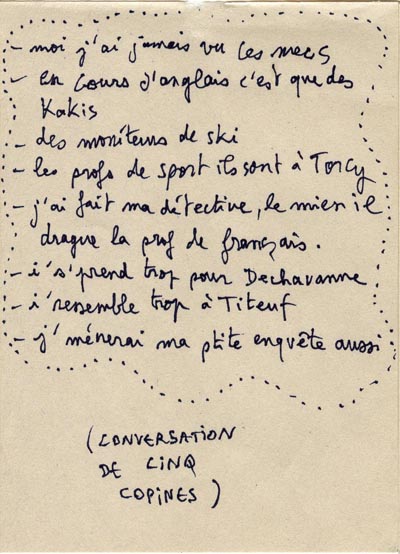 - moi j'ai jamais vu ces mecs
- en cours d'anglais c'est que des
Kakis
- des moniteurs de ski
- les profs de sport ils sont à Torcy
- j'ai fait ma détective, le mien il
drague la prof de français.
- i's'prend trop pour Dechavanne
- i'ressemble trop à Titeuf
- j'mènerai ma ptite enquête aussi
(CONVERSATION
DE CINQ
COPINES)